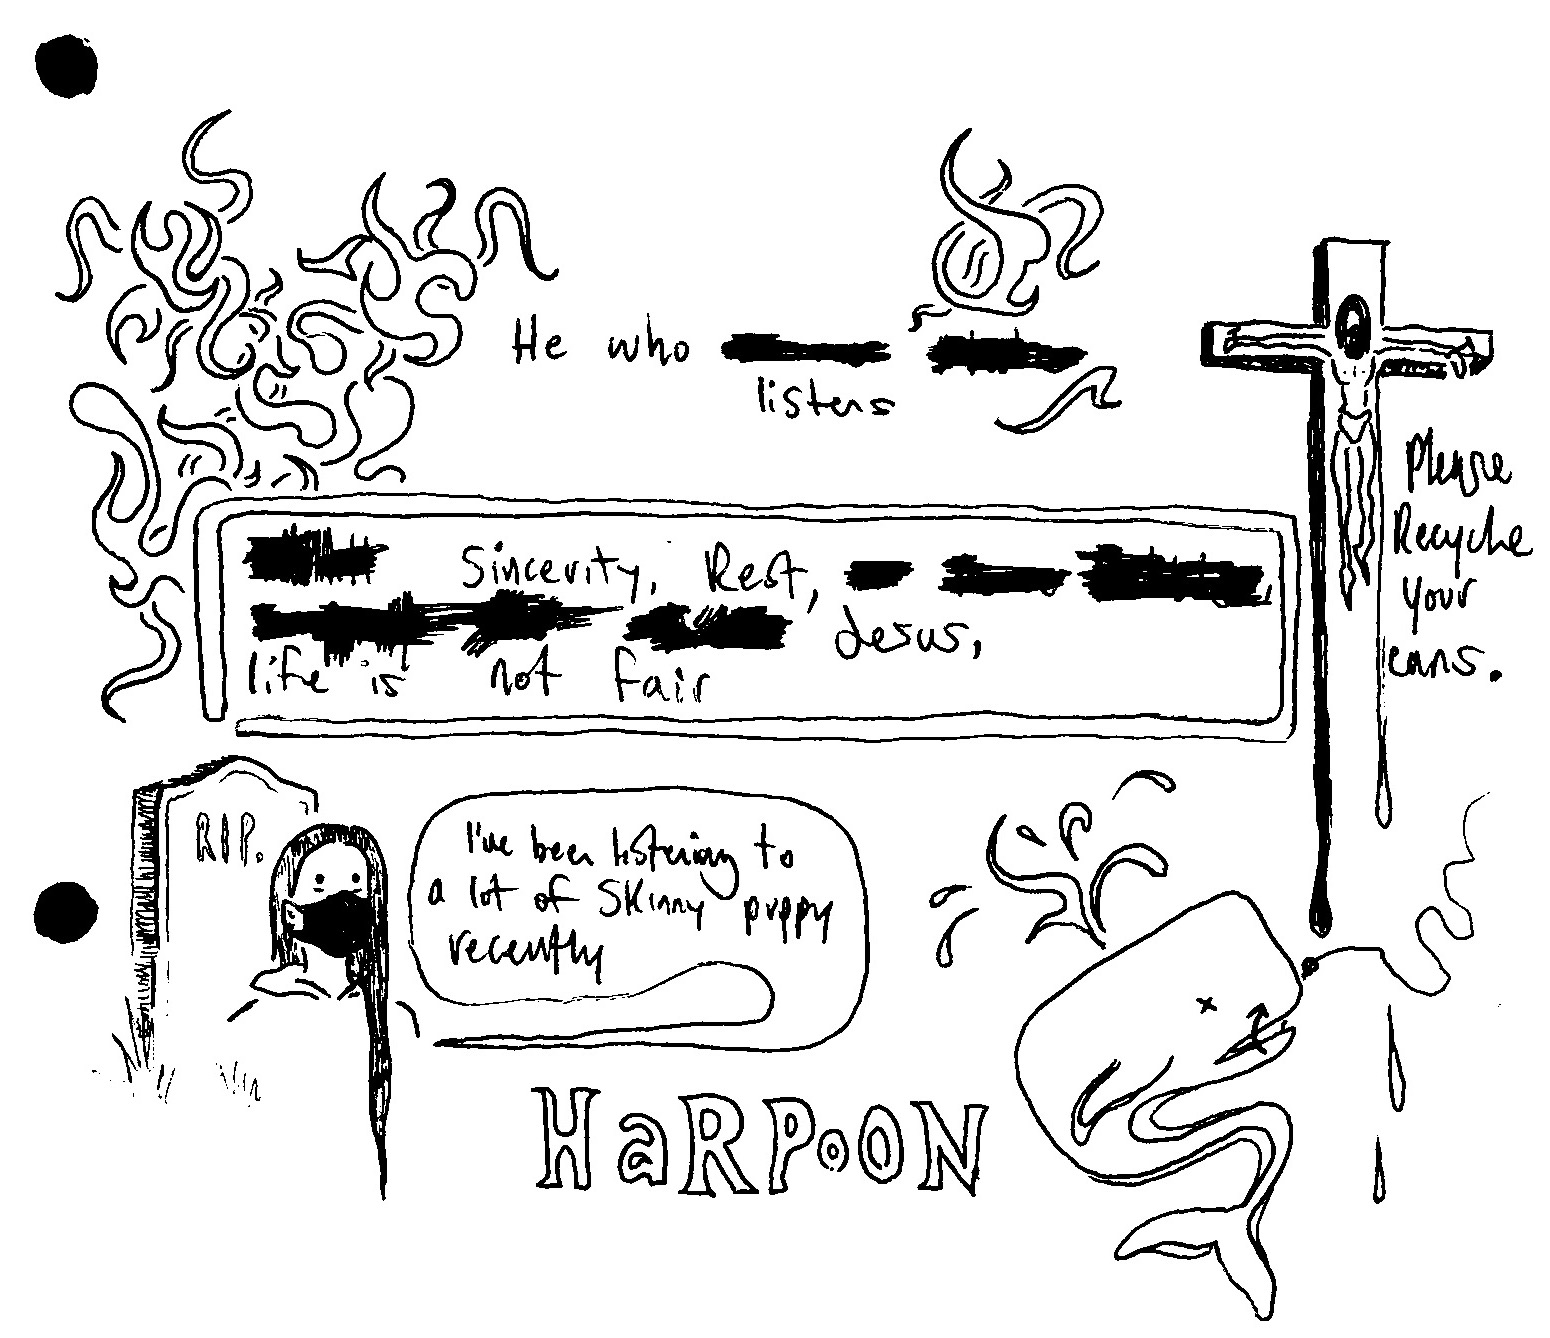 He who
listens
Sincerity, Rest,
Jesus,
life is not fair
Please
Recycle
Your
cans.
R.I.P.
I've been listening to
a lot of Skinny puppy
recently
HaRPoON